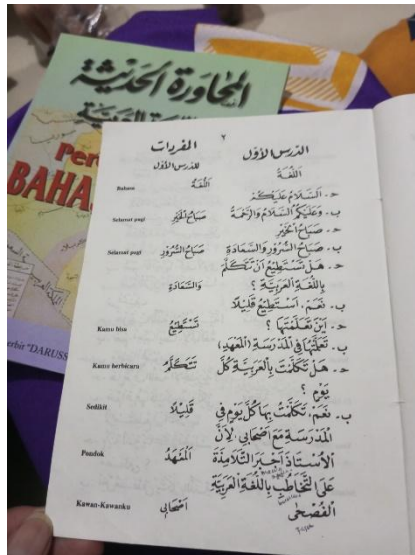 المحاورة الحديثة
العربية
Per
BAHA
erbit "DARUSS
٢
الدرس الأوّل
اَللُّغَةُ
حـ - اَلسَّلَامُ عَلَيْكُمْ
ب - وَعَلَيْكُمُ السَّلَامُ وَالرَّحْمَةُ
حـ - صَبَاحُ الْخَيْرِ
ب - صَبَاحُ السُّرُوْرِ وَالسَّعَادَةِ
حـ - هَلْ تَسْتَطِيْعُ اَنْ تَتَكَلَّمَ
بِاللُّغَةِ الْعَرَبِيَّةِ ؟
ب - نَعَمْ، اَسْتَطِيْعُ قَلِيْلًا
حـ - اَيْنَ تَعَلَّمْتَهَا ؟
ب - تَعَلَّمْتُهَا فِي الْمَدْرَسَةِ (الْمَعْهَدِ)
حـ - هَلْ تَكَلَّمْتَ بِالْعَرَبِيَّةِ كُلَّ
يَوْمٍ ؟
ب - نَعَمْ، تَكَلَّمْتُ بِهَا كُلَّ يَوْمٍ فِي
الْمَدْرَسَةِ مَعَ اَصْحَابِي لِاَنَّ
الْاُسْتَاذَ اَجْبَرَ التَّلَامِذَةَ
عَلَى التَّخَاطُبِ بِاللُّغَةِ الْعَرَبِيَّةِ
الْفُصْحٰى
المفردات
للدرس الأوّل
اَللُّغَةُ Bahasa
صَبَاحُ الْخَيْرِ Selamat pagi
صَبَاحُ السُّرُوْرِ Selamat pagi
وَالسَّعَادَةِ
تَسْتَطِيْعُ Kamu bisa
تَتَكَلَّمُ Kamu berbicara
قَلِيْلًا Sedikit
اَلْمَعْهَدُ Pondok
اَصْحَابِي Kawan-Kawanku